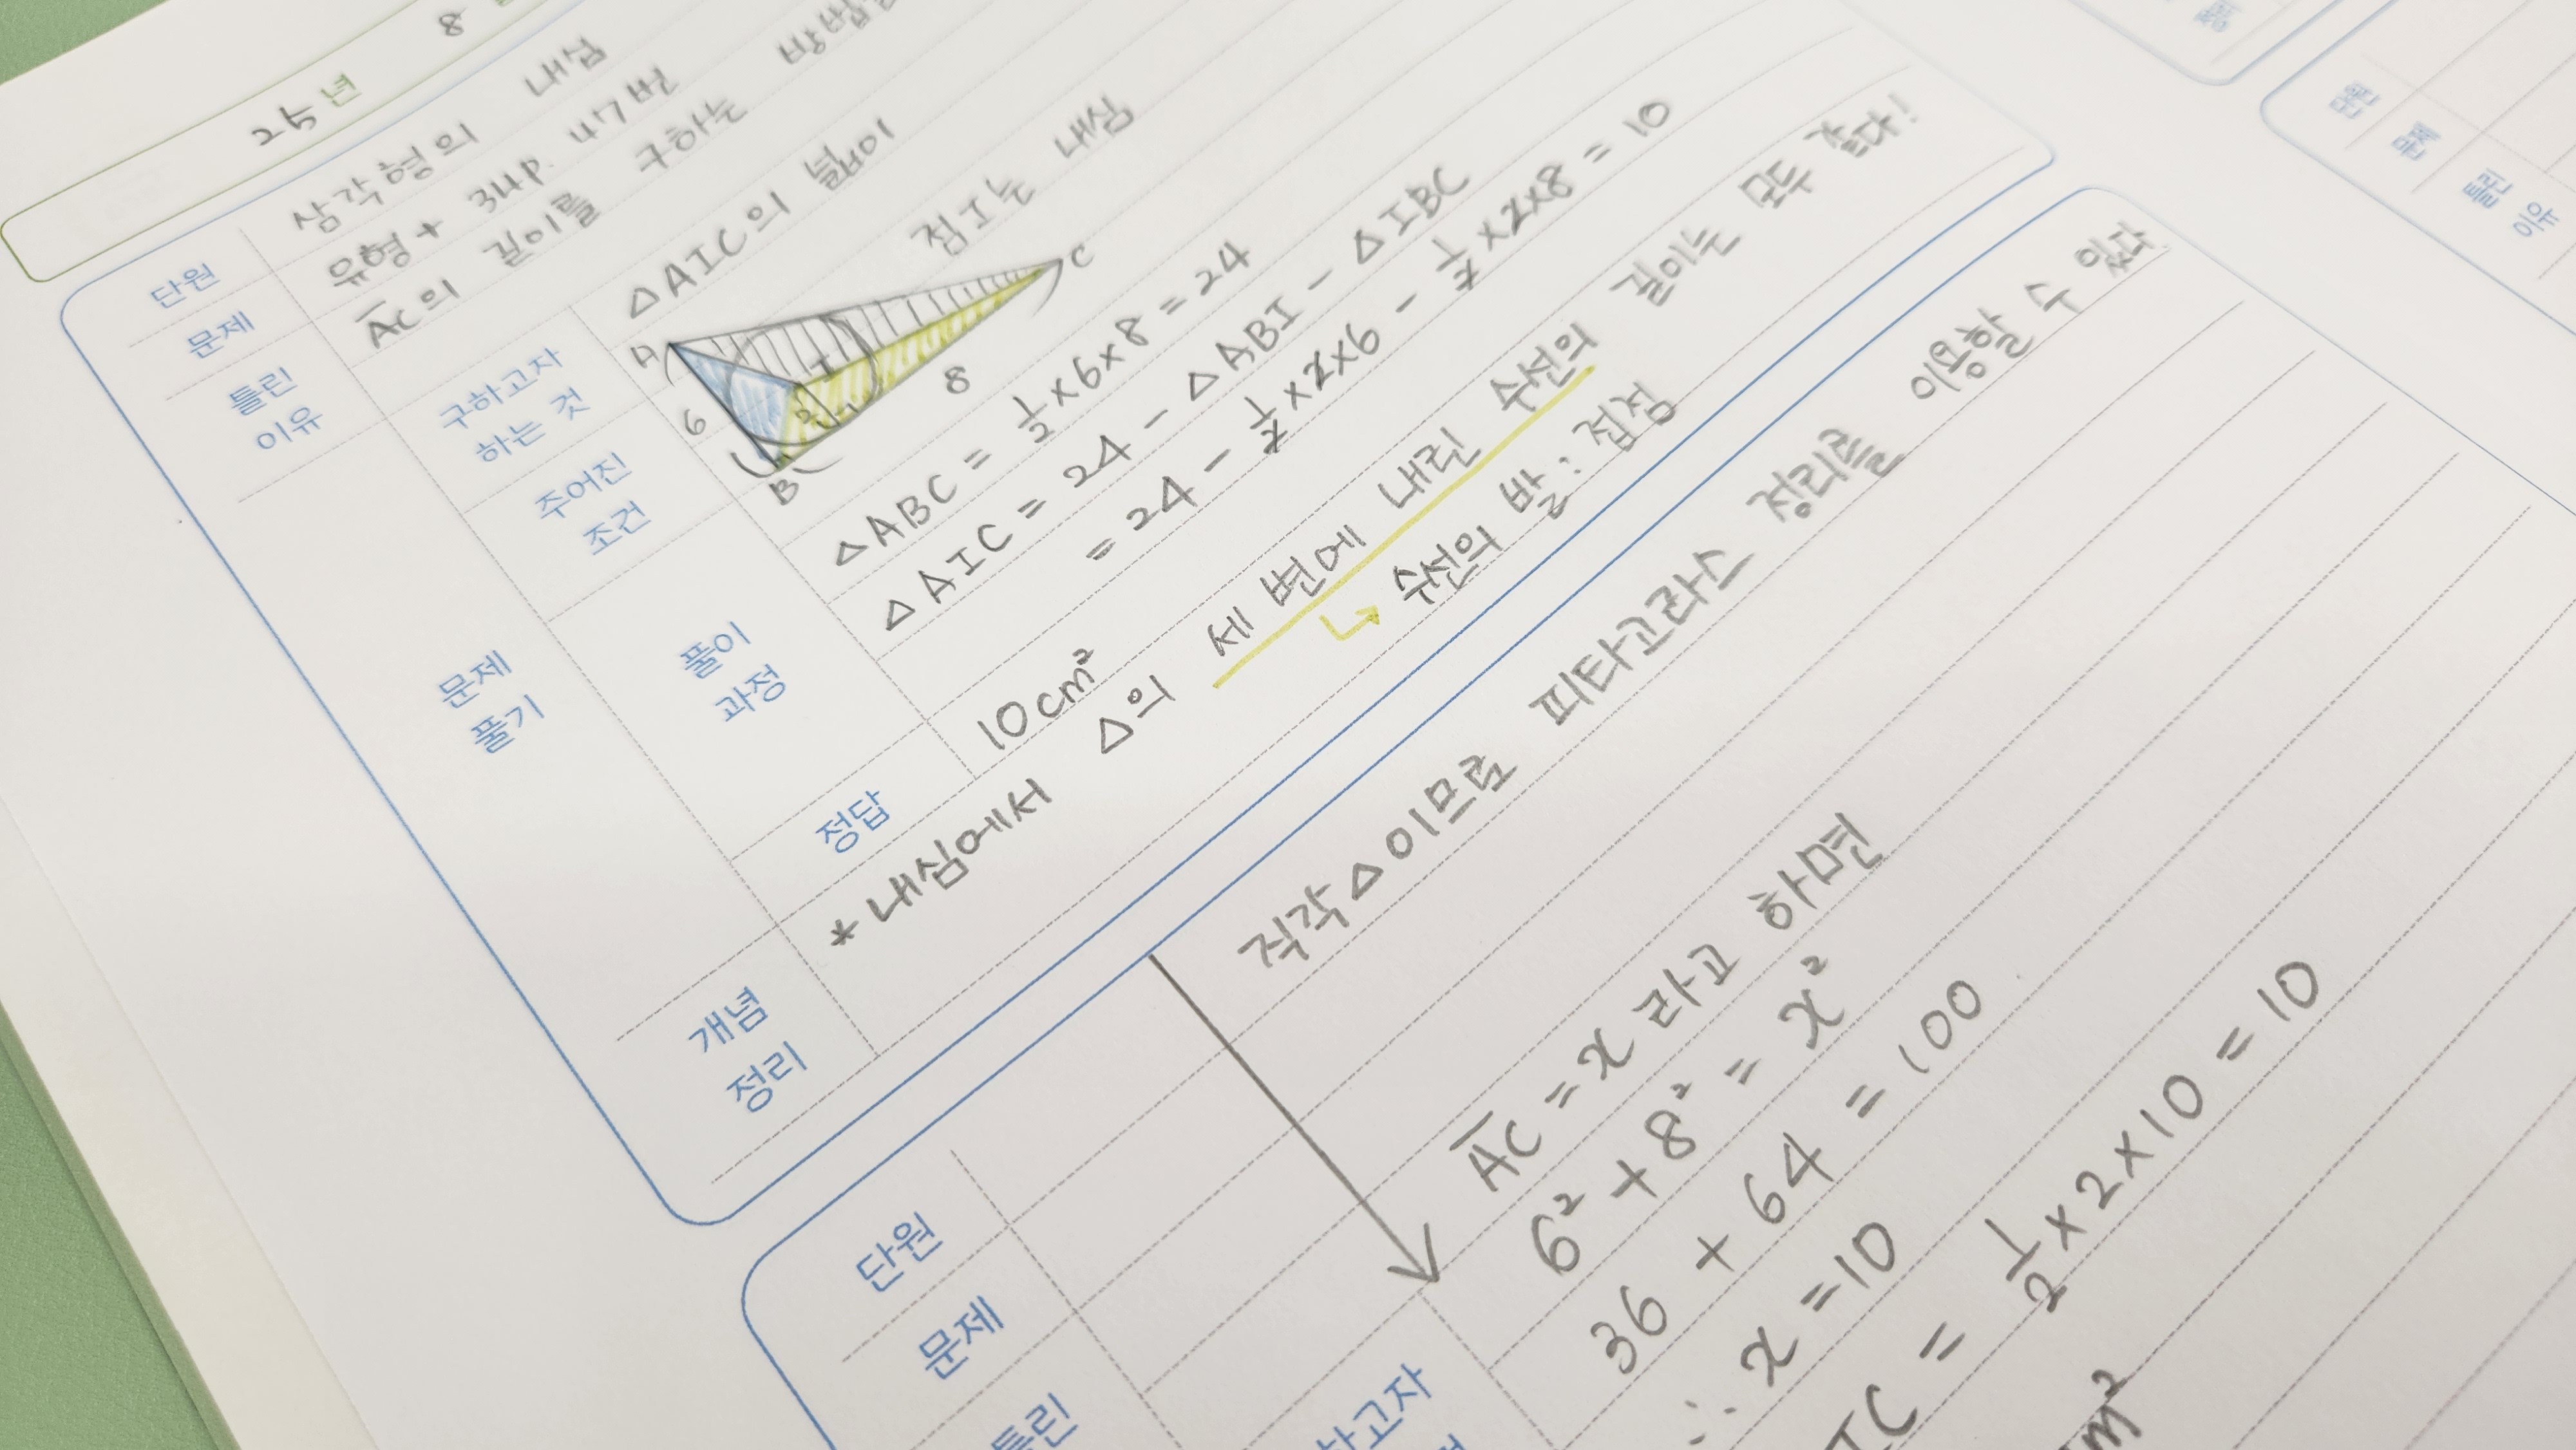 25년 8
단원 삼각형의 내심
문제 유형+ 34p. 47번
틀린 이유 AC의 길이를 구하는
문제 풀기
구하고자 하는 것 △AIC의 넓이
주어진 조건 점 I는 내심
A
I
C
6
2
8
B
풀이 과정
△ABC = 1/2 × 6 × 8 = 24
△AIC = 24 - △ABI - △IBC
= 24 - 1/2 × 2 × 6 - 1/2 × 2 × 8 = 10
정답 10cm²
개념 정리
* 내심에서 △의 세 변에 내린 수선의 길이는 모두 같다!
↳ 수선의 발: 접점
직각△이므로 피타고라스 정리를 이용할 수 있다
AC = x 라고 하면
6² + 8² = x²
36 + 64 = 100
∴ x = 10
IC = 1/2 × 2 × 10 = 10
m²
단원
문제
틀린
하고자
단원
문제
틀린 이유